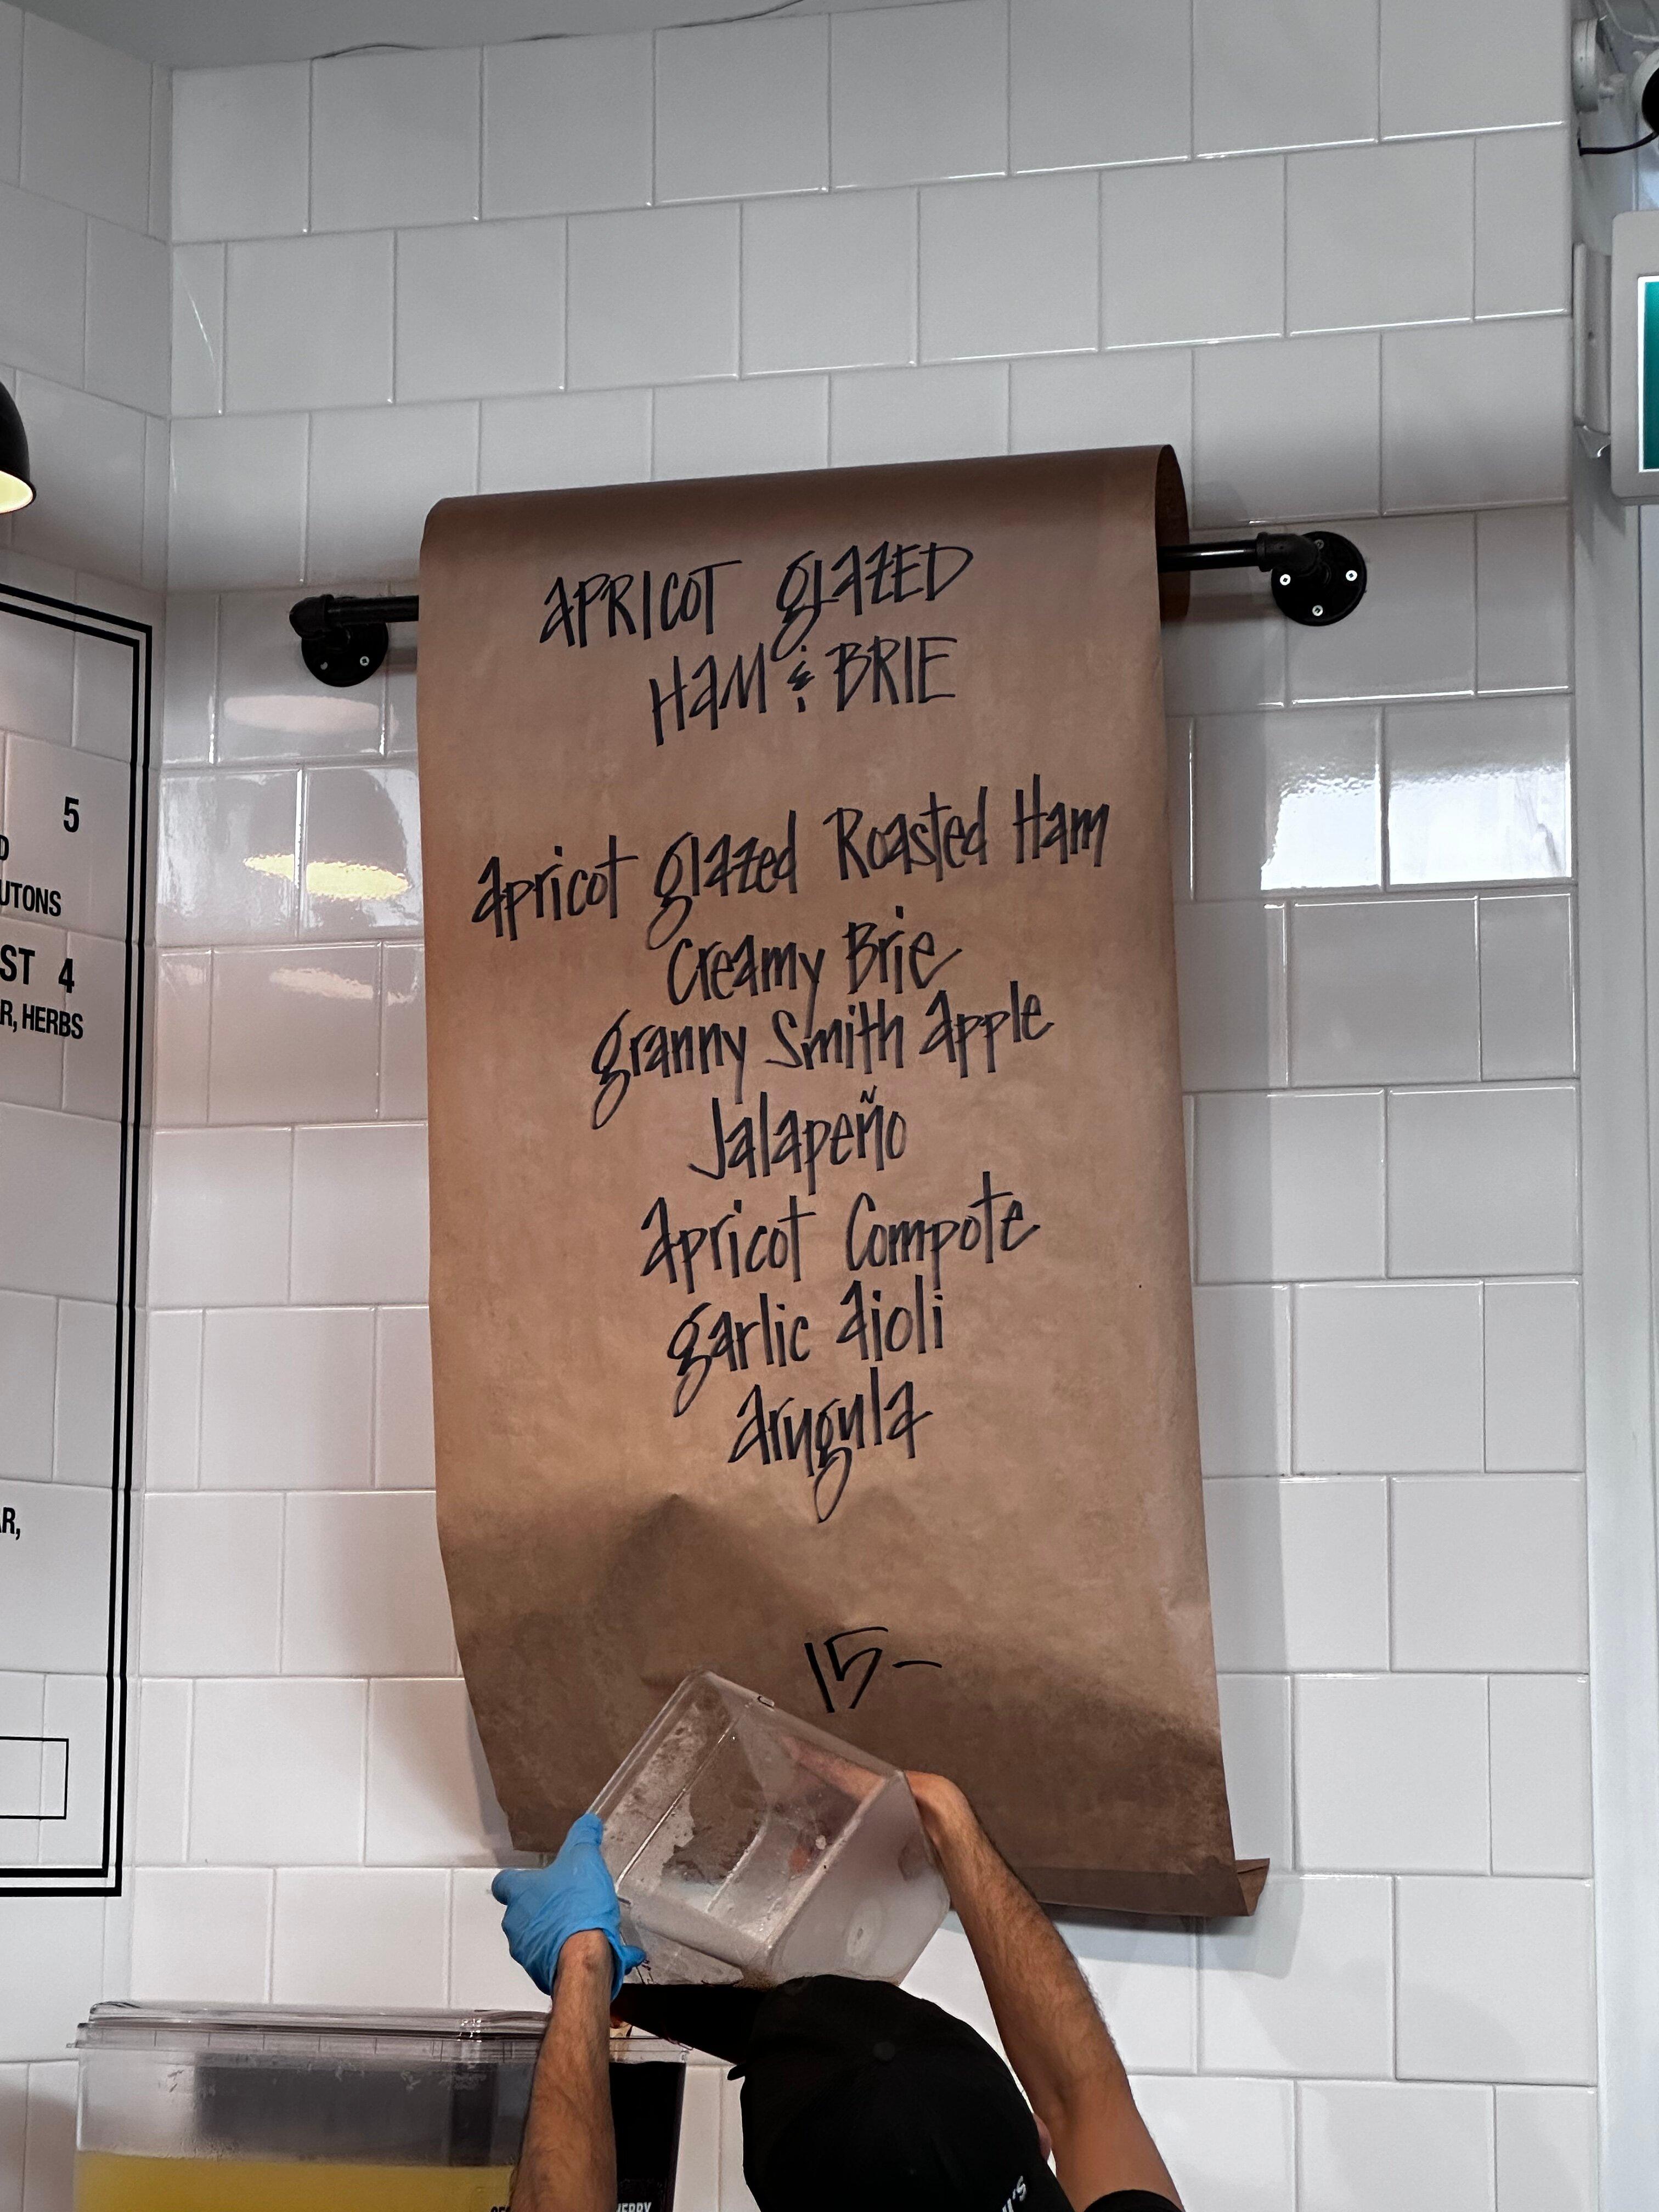 APRICOT glazED
HaM & BRIE
apricot glazed Roasted Ham
Creamy Brie
granny Smith apple
Jalapeño
apricot Compote
garlic aioli
arugula
15-
5
D
UTONS
ST 4
R, HERBS
R,
HERRY